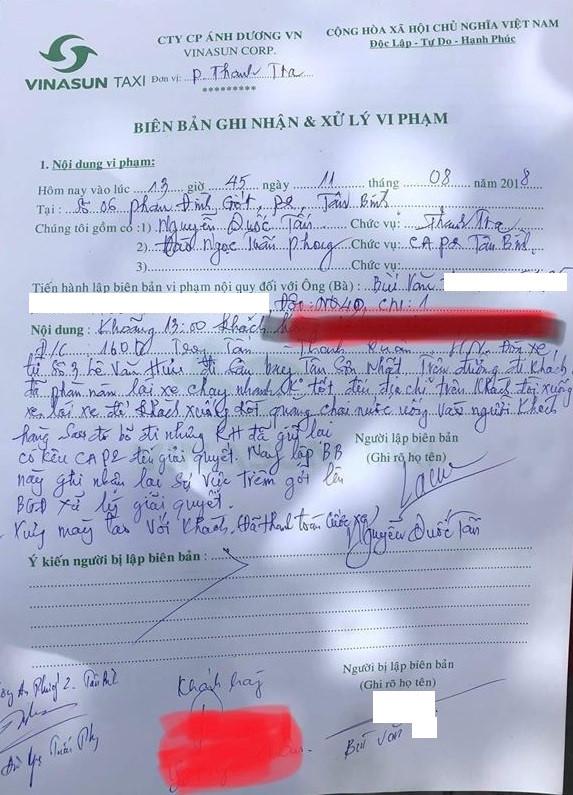 VINASUN TAXI
CTY CP ÁNH DƯƠNG VN
VINASUN CORP.
Đơn vị: P. Thanh Tra
*********
CỘNG HÒA XÃ HỘI CHỦ NGHĨA VIỆT NAM
Độc Lập - Tự Do - Hạnh Phúc
BIÊN BẢN GHI NHẬN & XỬ LÝ VI PHẠM
1. Nội dung vi phạm:
Hôm nay vào lúc 13 giờ 45 ngày 11 tháng 08 năm 2018
Tại : Số 06 Phan Đình Giót, P2, Tân Bình
Chúng tôi gồm có :1) Nguyễn Quốc Tấn Chức vụ: Thanh Tra
2) Đào Ngọc Tuấn Phong Chức vụ: CAP2 Tân Bình
3) Chức vụ:
Tiến hành lập biên bản vi phạm nội quy đối với Ông (Bà) : Bùi Văn
chi: 1
Nội dung : Khoảng 13:00 Khách
Đ/C: 160 Tấn - Thanh Xuân H.N. Đón xe
từ số 3 Lê Văn Hưu đi sân bay Tân Sơn Nhất. Trên đường đi khách
đã phàn nàn lái xe chạy nhanh K tốt, đến địa chỉ trên khách đòi xuống
xe, lái xe để khách xuống rồi quăng chai nước uống vào người khách
hàng sau đó bỏ đi nhưng KH đã giữ lại
có kêu CAP2 tới giải quyết. Nay lập BB
này ghi nhận lại sự việc trên gởi lên
BGĐ xử lý giải quyết.
Xưng mày tao với khách. Đã thanh toán cước xe
Người lập biên bản
(Ghi rõ họ tên)
Nguyễn Quốc Tấn
Ý kiến người bị lập biên bản :
Khách hàng
Người bị lập biên bản
(Ghi rõ họ tên)
Bùi Văn